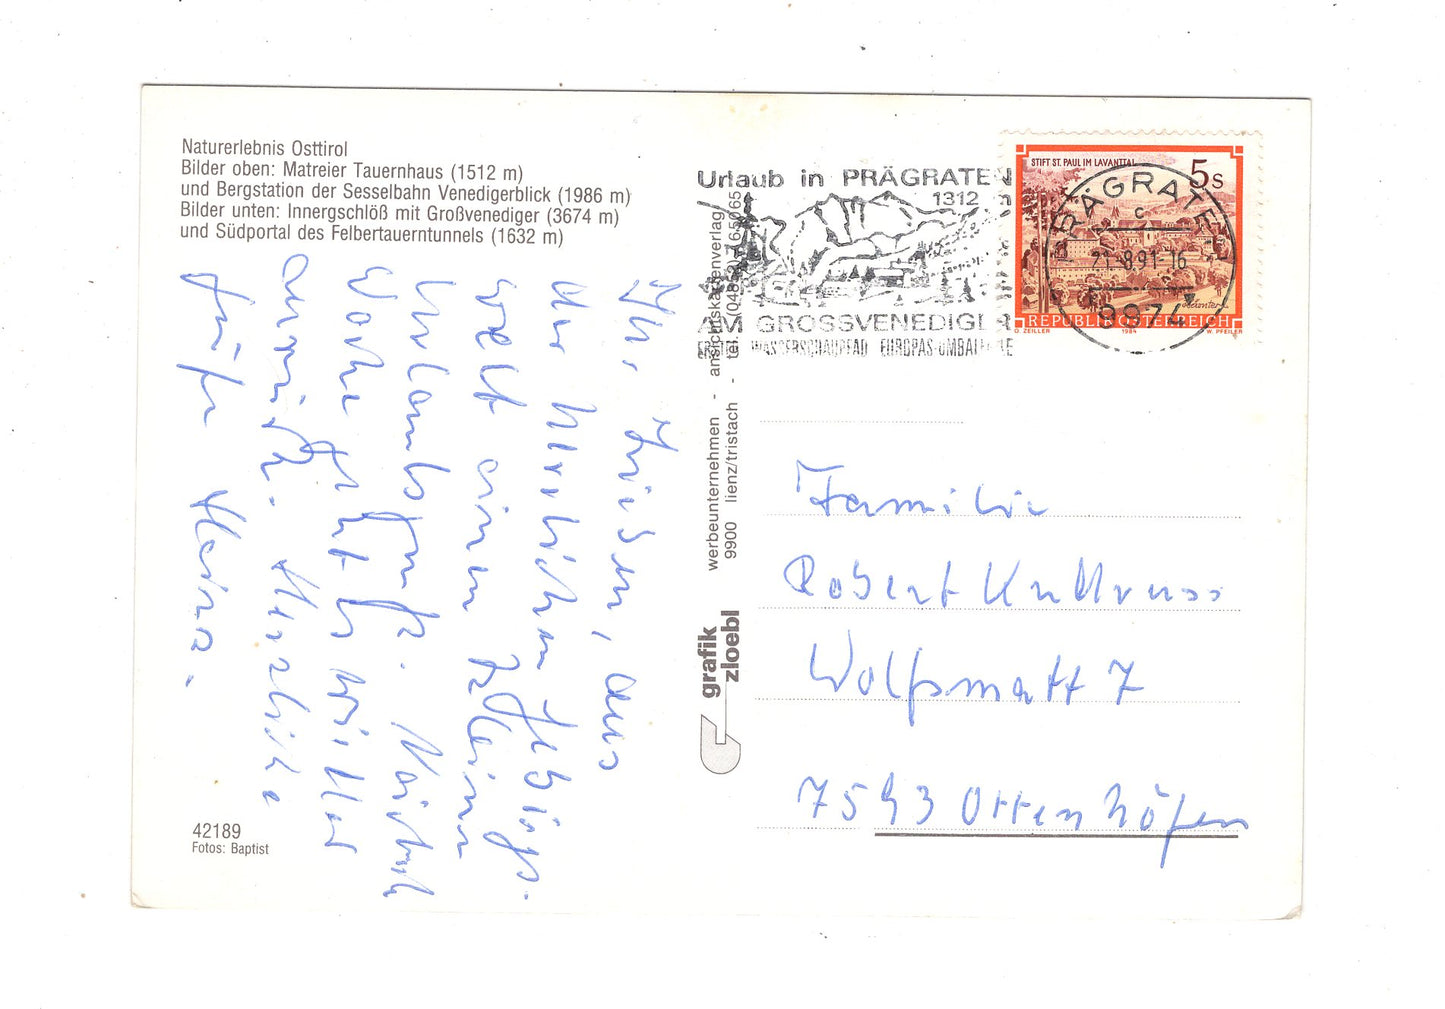 Naturerlebnis Osttirol
Bilder oben: Matreier Tauernhaus (1512 m)
und Bergstation der Sesselbahn Venedigerblick (1986 m)
Bilder unten: Innergschlöß mit Großvenediger (3674 m)
und Südportal des Felbertauerntunnels (1632 m)
Ihr Lieben, aus
der herrlichen Gebirgs-
welt einen kleinen
Urlaubsgruß. Nächste
Woche geht es wieder
zurück. Herzliche
Grüße Heinz.
42189
Fotos: Baptist
werbeunternehmen - ansichtskartenverlag
9900 lienz/tristach - tel. (04852)
65
grafik
zloebl
Urlaub in PRÄGRATEN
1312
AM GROSSVENEDIGER
WASSERSCHAUPFAD EUROPAS-UMBALFÄLLE
STIFT ST. PAUL IM LAVANTTAL
5 S
REPUBLIK ÖSTERREICH
O. ZEILLER 1984 W. PFEILER
PRÄGRATEN
C
21.-8.91-16
9974
Familie
Robert
Wolfsmatt 7
7593 Ottenhöfen